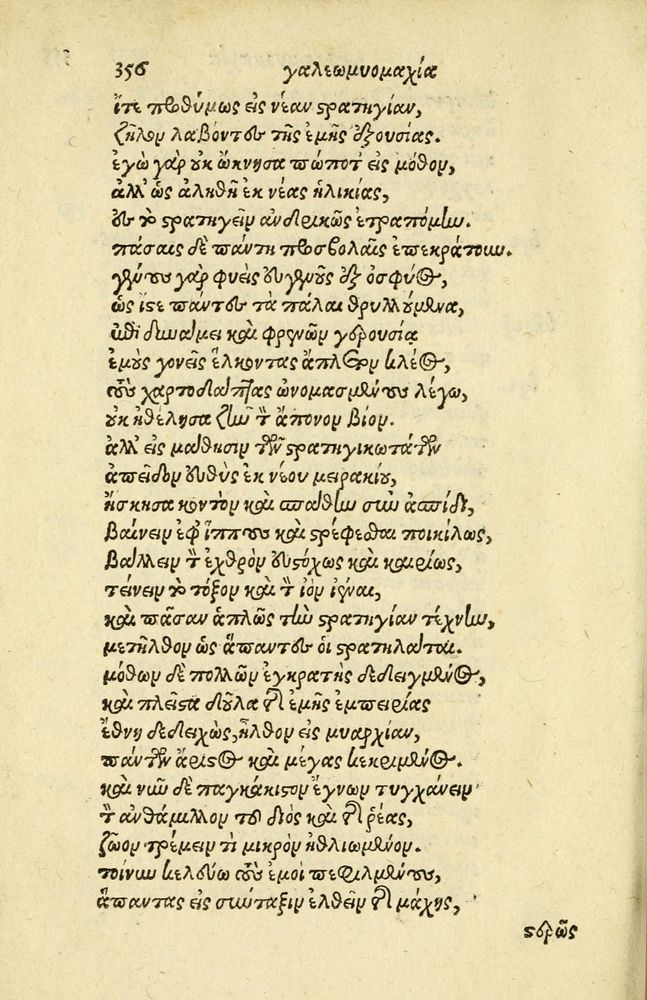 356 γαλεωμυομαχία
ἴτε προθύμως εἰς νέαν στρατηγίαν,
ζῆλον λαβόντες τῆς ἐμῆς ἐξουσίας.
ἐγὼ γὰρ οὐκ ὤκνησα πώποτ εἰς μόθον,
ἀλλ' ὡς ἀληθῆ ἐκ νέας ἡλικίας,
εὖ τὸ στρατηγεῖν ἀνδρικῶς ἐτραπόμην.
πάσαις δὲ πάντη προσβολαῖς ἐπεκράτουν.
γένους γὰρ φυεὶς εὐγενοῦς ἐξ ὀσφύος,
ὡς ἴστε πάντες τὰ πάλαι θρυλλούμενα,
ἐπὶ δυνάμει καὶ φρενῶν γερουσίᾳ
ἐμοὺς γονεῖς ἕλκοντας ἄπλετον κλέος,
τοὺς χαρτοδάπτας ὠνομασμένους λέγω,
οὐκ ἠθέλησα ζῆν τὸν ἄπονον βίον.
ἀλλ' εἰς μάθησιν τῶν στρατηγικωτάτων
ἀπεῖδον εὐθὺς ἐκ νέου μειρακίου,
ἤσκησα κοντὸν καὶ σπάθην σὺν ἀσπίδι,
βαίνειν ἐφ' ἵππους καὶ στρέφεσθαι ποικίλως,
βάλλειν τὸν ἐχθρὸν εὐστόχως καὶ καιρίως,
τείνειν τὸ τόξον καὶ τὸν ἰὸν ἰέναι,
καὶ πᾶσαν ἁπλῶς τὴν στρατηγίαν τέχνην,
μετῆλθον ὡς ἅπαντες οἱ στρατηλάται.
μόθων δὲ πολλῶν ἐγκρατὴς δεδειγμένος,
καὶ πλεῖστα δοῦλα τῆς ἐμῆς ἐμπειρίας
ἔθνη δεδειχὼς, ἦλθον εἰς μυαρχίαν,
πάντων ἄριστος καὶ μέγας κεκριμένος.
καὶ νῦν δὲ παγκάκιστον ἔγνων τυγχάνειν
τὸν ἀνθάμιλλον τοῦ διὸς καὶ τῆς ῥέας,
ζῶον τρέμειν τὶ μικρὸν ἠθλιωμένον.
τοίνυν κελεύω τοὺς ἐμοὶ πεφιλμένους,
ἅπαντας εἰς σύνταξιν ἐλθεῖν τῆς μάχης,
στερῶς